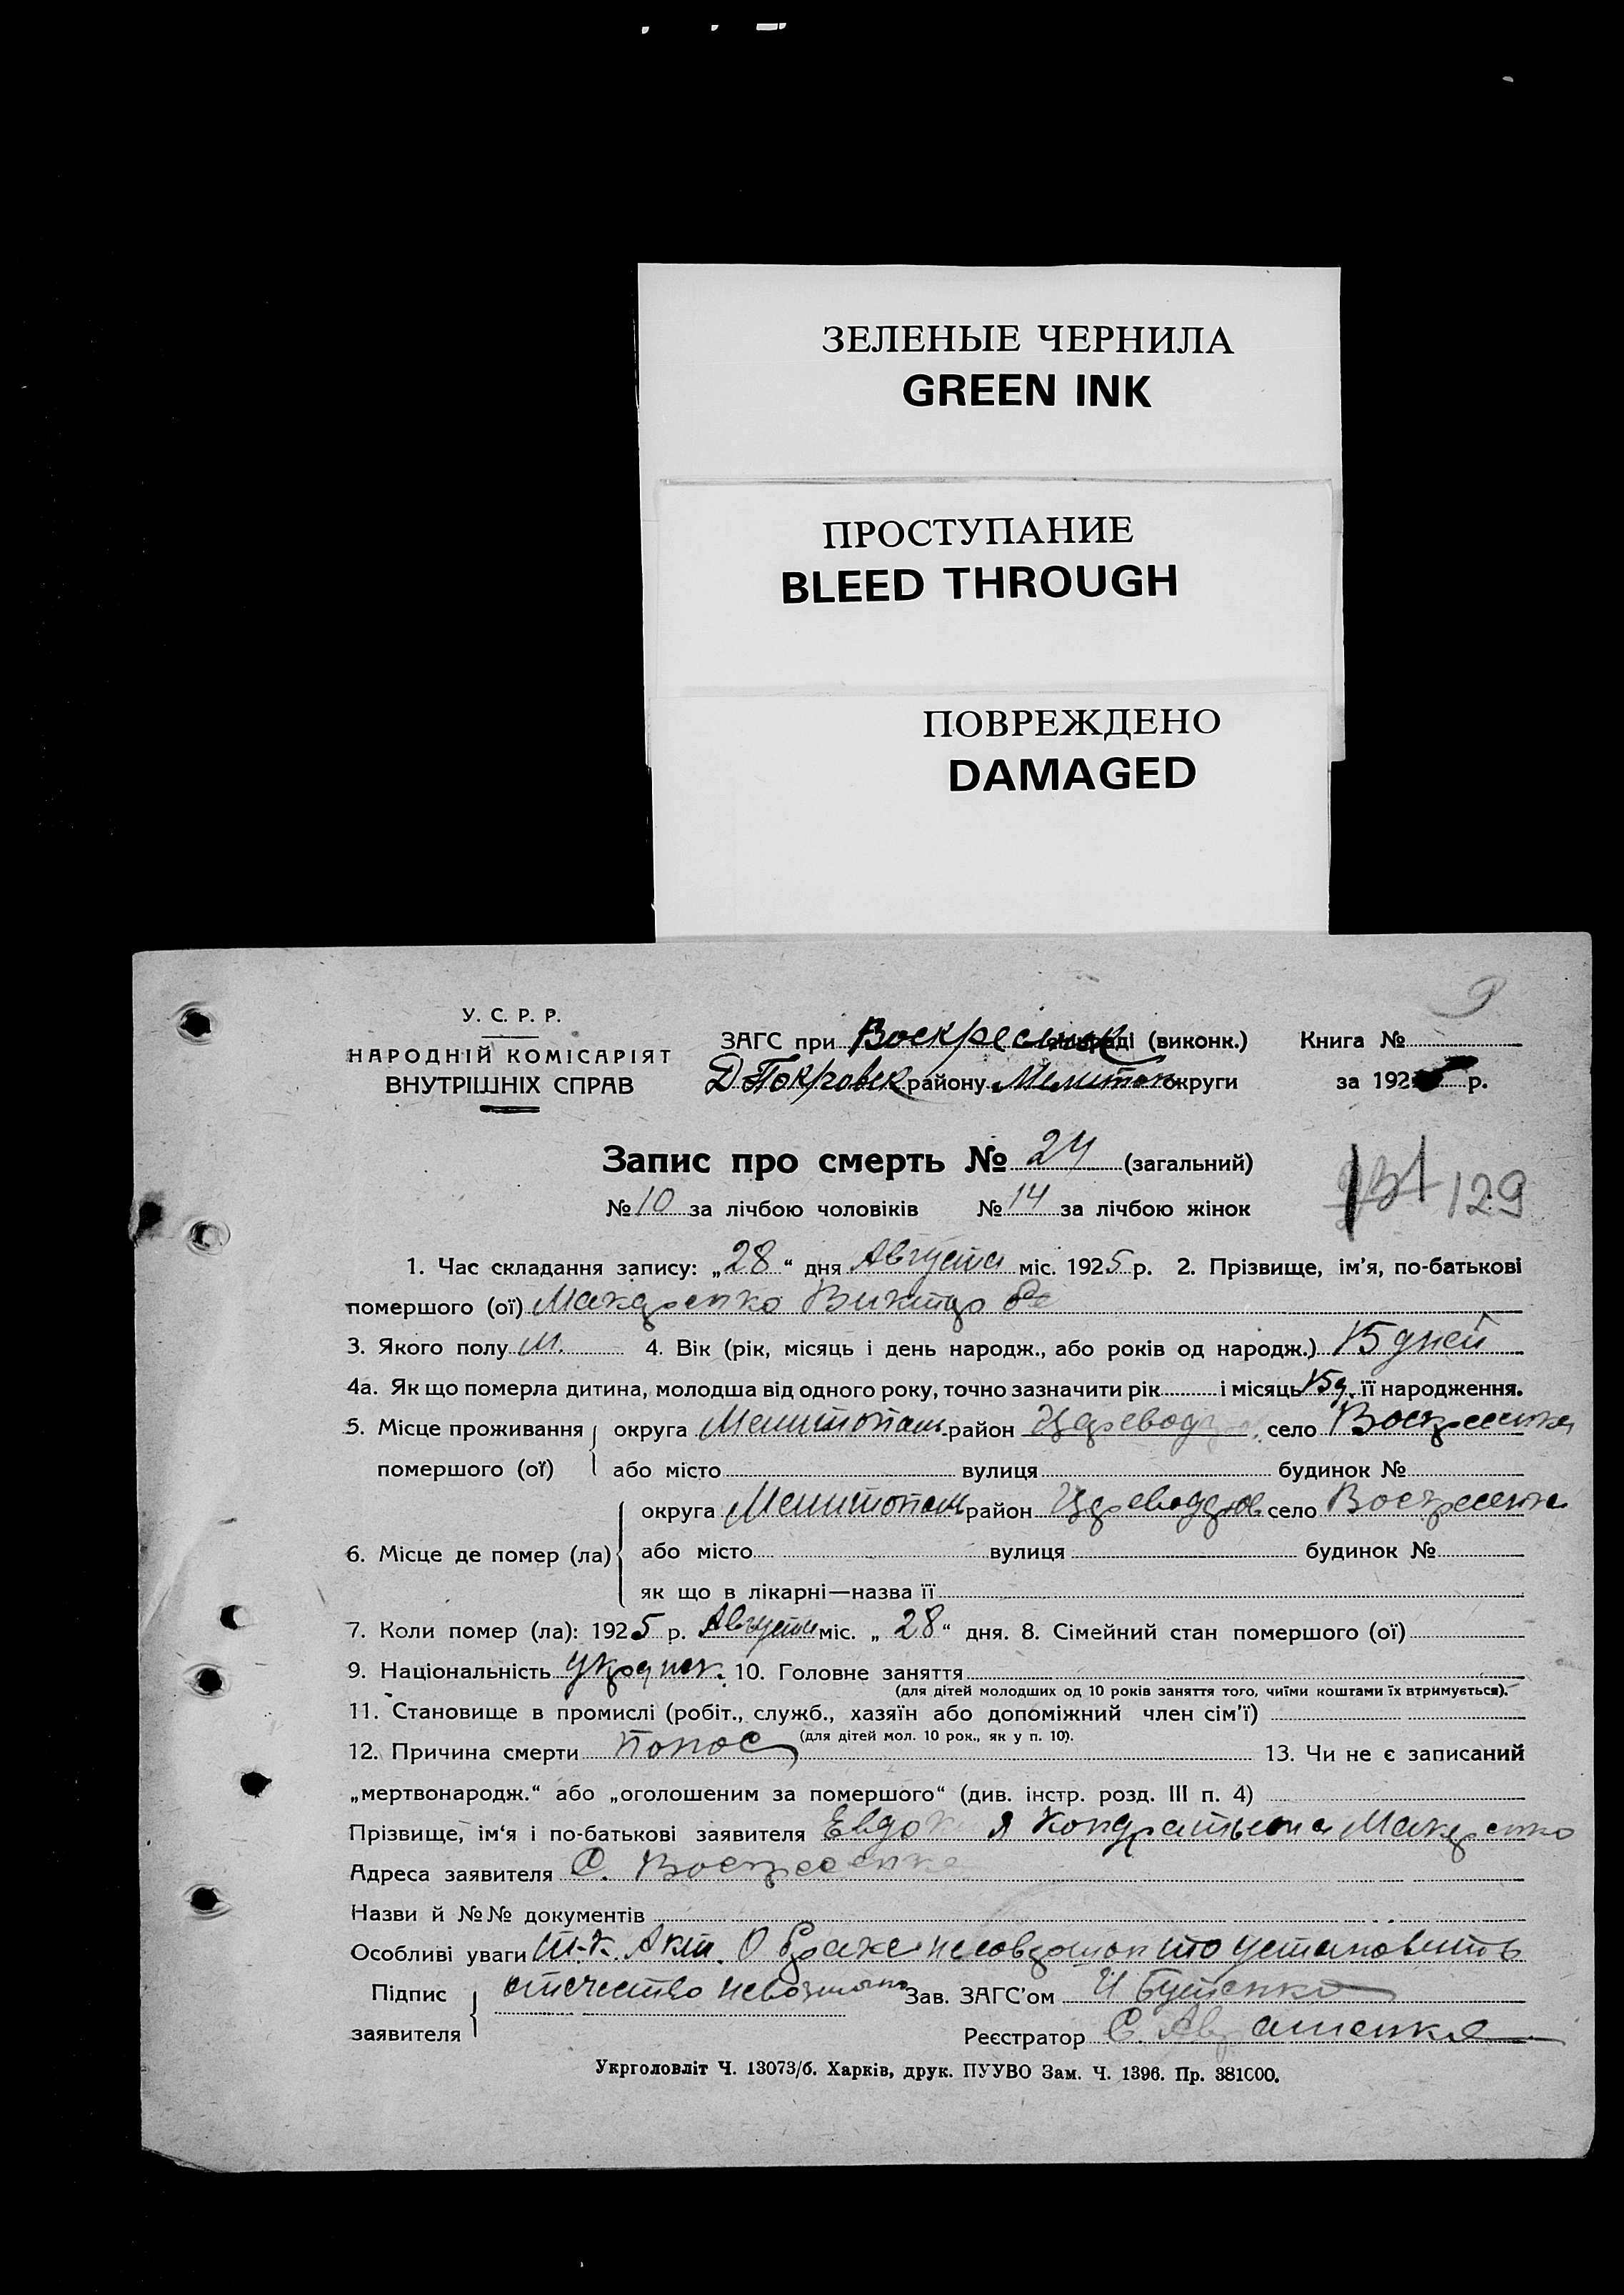 ЗЕЛЕНЫЕ ЧЕРНИЛА
GREEN INK
ПРОСТУПАНИЕ
BLEED THROUGH
ПОВРЕЖДЕНО
DAMAGED
У. С. Р. Р.
НАРОДНІЙ КОМІСАРІЯТ
ВНУТРІШНІХ СПРАВ
ЗАГС при Воскресенск (виконк.) Книга №
Д Покровск району Мелитоп округи за 192 р.
Запис про смерть № 24 (загальний)
№ 10 за лічбою чоловіків № 14 за лічбою жінок
129
1. Час складання запису: „28“ дня Августа міс. 1925 р. 2. Прізвище, ім’я, по-батькові
помершого (ої) Макаренко Виктор
3. Якого полу М. 4. Вік (рік, місяць і день народж., або років од народж.) 15 дней
4а. Як що померла дитина, молодша від одного року, точно зазначити рік і місяць 15 д. її народження.
5. Місце проживання округа Мелитопол район село Воскресенка
помершого (ої) або місто вулиця будинок №
округа Мелитопол район село Воскресенка
6. Місце де помер (ла) або місто вулиця будинок №
як що в лікарні—назва її
7. Коли помер (ла): 1925 р. Августа міс. „28“ дня. 8. Сімейний стан помершого (ої)
9. Національність украинск. 10. Головне заняття
(для дітей молодших од 10 років заняття того, чиїми коштами їх втримується).
11. Становище в промислі (робіт., служб., хазяїн або допоміжний член сім’ї)
(для дітей мол. 10 рок., як у п. 10).
12. Причина смерти Понос 13. Чи не є записаний
„мертвонародж.“ або „оголошеним за помершого“ (див. інстр. розд. III п. 4)
Прізвище, ім‘я і по-батькові заявителя Евдок я Кондратьевна Макаренко
Адреса заявителя С. Воскресенка
Назви й №№ документів
Особливі уваги т.к. Акт. О браке не то установить
Підпис отчество невозможно Зав. ЗАГС’ом И Бутенко
заявителя Реєстратор С.
Укрголовліт Ч. 13073/б. Харків, друк. ПУУВО Зам. Ч. 1396. Пр. 381000.